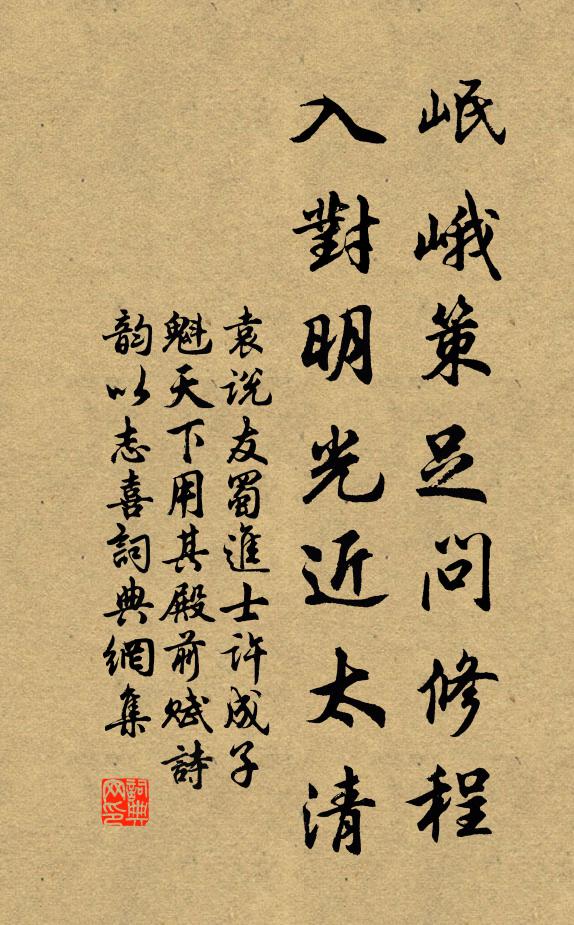 岷峨策足問修程
入對明光近太清
袁说友蜀進士许成子
魁天下用其殿前赋詩
韵以志喜詞典網集
詞典网印